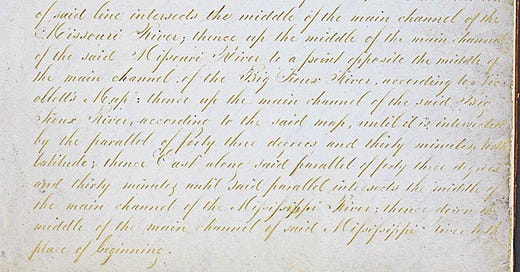 of said line intersects the middle of the main channel of the
Missouri River; thence up the middle of the main channel
of the said Missouri River to a point opposite the middle of
the main channel of the Big Sioux River, according to Nic-
olletts Map: thence up the main channel of the said Big
Sioux River, according to the said map, until it is intersected
by the parallel of forty three degrees and thirty minutes, north
latitude; thence East along said parallel of forty three degrees
and thirty minutes until said parallel intersects the middle of
the main channel of the Mississippi River; thence down the
middle of the main channel of said Mississippi River to the
place of beginning.